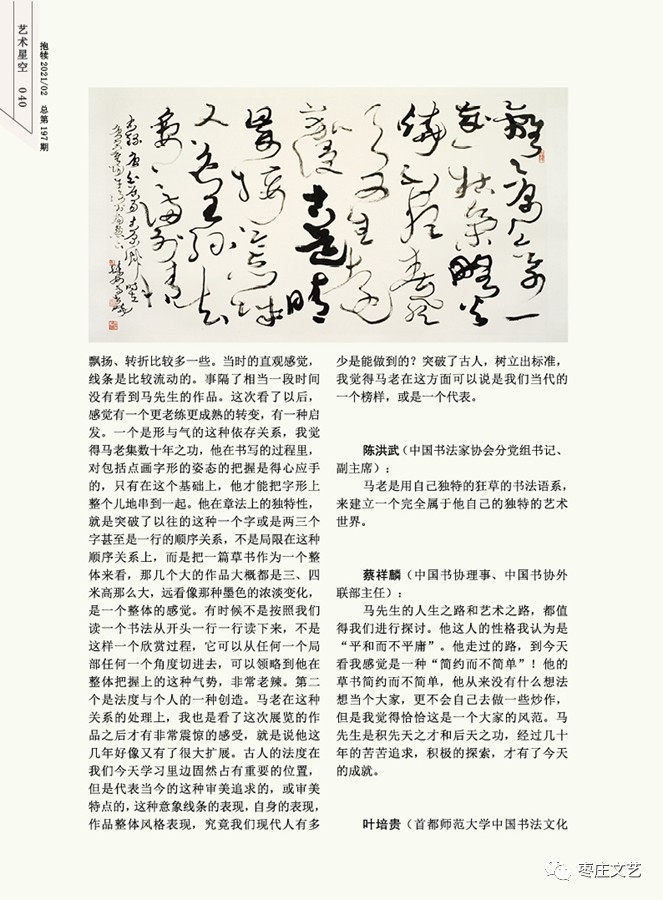 艺术星空 040
抱犊 2021/02 总第197期
飘扬、转折比较多一些。当时的直观感觉，
线条是比较流动的。事隔了相当一段时间
没有看到马先生的作品。这次看了以后，
感觉有一个更老练更成熟的转变，有一种启
发。一个是形与气的这种依存关系，我觉
得马老集数十年之功，他在书写的过程里，
对包括点画字形的姿态的把握是得心应手
的，只有在这个基础上，他才能把字形上
整个儿地串到一起。他在章法上的独特性，
就是突破了以往的这种一个字或是两三个
字甚至是一行的顺序关系，不是局限在这种
顺序关系上，而是把一篇草书作为一个整
体来看，那几个大的作品大概都是三、四
米高那么大，远看像那种墨色的浓淡变化，
是一个整体的感觉。有时候不是按照我们
读一个书法从开头一行一行读下来，不是
这样一个欣赏过程，它可以从任何一个局
部任何一个角度切进去，可以领略到他在
整体把握上的这种气势，非常老辣。第二
个是法度与个人的一种创造。马老在这种
关系的处理上，我也是看了这次展览的作
品之后才有非常震惊的感受，就是说他这
几年好像又有了很大扩展。古人的法度在
我们今天学习里边固然占有重要的位置，
但是代表当今的这种审美追求的，或审美
特点的，这种意象线条的表现，自身的表现，
作品整体风格表现，究竟我们现代人有多
少是能做到的？突破了古人，树立出标准，
我觉得马老在这方面可以说是我们当代的
一个榜样，或是一个代表。
陈洪武（中国书法家协会分党组书记、
副主席）：
马老是用自己独特的狂草的书法语系，
来建立一个完全属于他自己的独特的艺术
世界。
蔡祥麟（中国书协理事、中国书协外
联部主任）：
马先生的人生之路和艺术之路，都值
得我们进行探讨。他这人的性格我认为是
“平和而不平庸”。他走过的路，到今天
看我感觉是一种“简约而不简单”！他的
草书简约而不简单，他从来没有什么想法
想当个大家，更不会自己去做一些炒作，
但是我觉得恰恰这是一个大家的风范。马
先生是积先天之才和后天之功，经过几十
年的苦苦追求，积极的探索，才有了今天
的成就。
叶培贵（首都师范大学中国书法文化
枣庄文艺